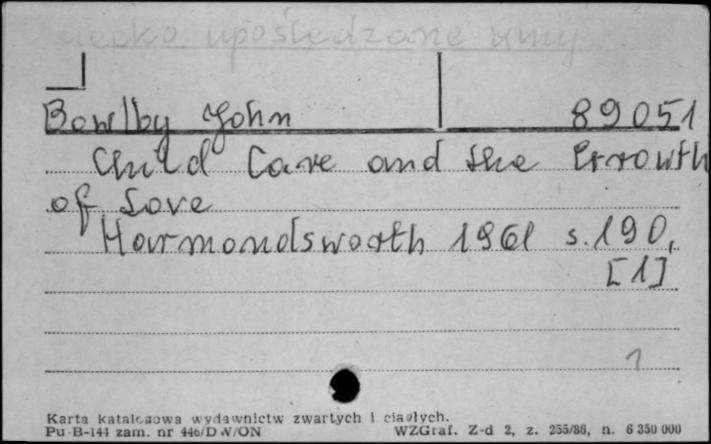 dziecko upośledzone umy
Bowlby John 89051
Child Care and the Growth
of Love
Harmondsworth 1961 s. 190,
[1]
1
Karta katalogowa wydawnictw zwartych i ciągłych.
Pu-B-144 zam. nr 446/D W/ON WZGraf. Z-d 2, z. 255/86, n. 6 350 000